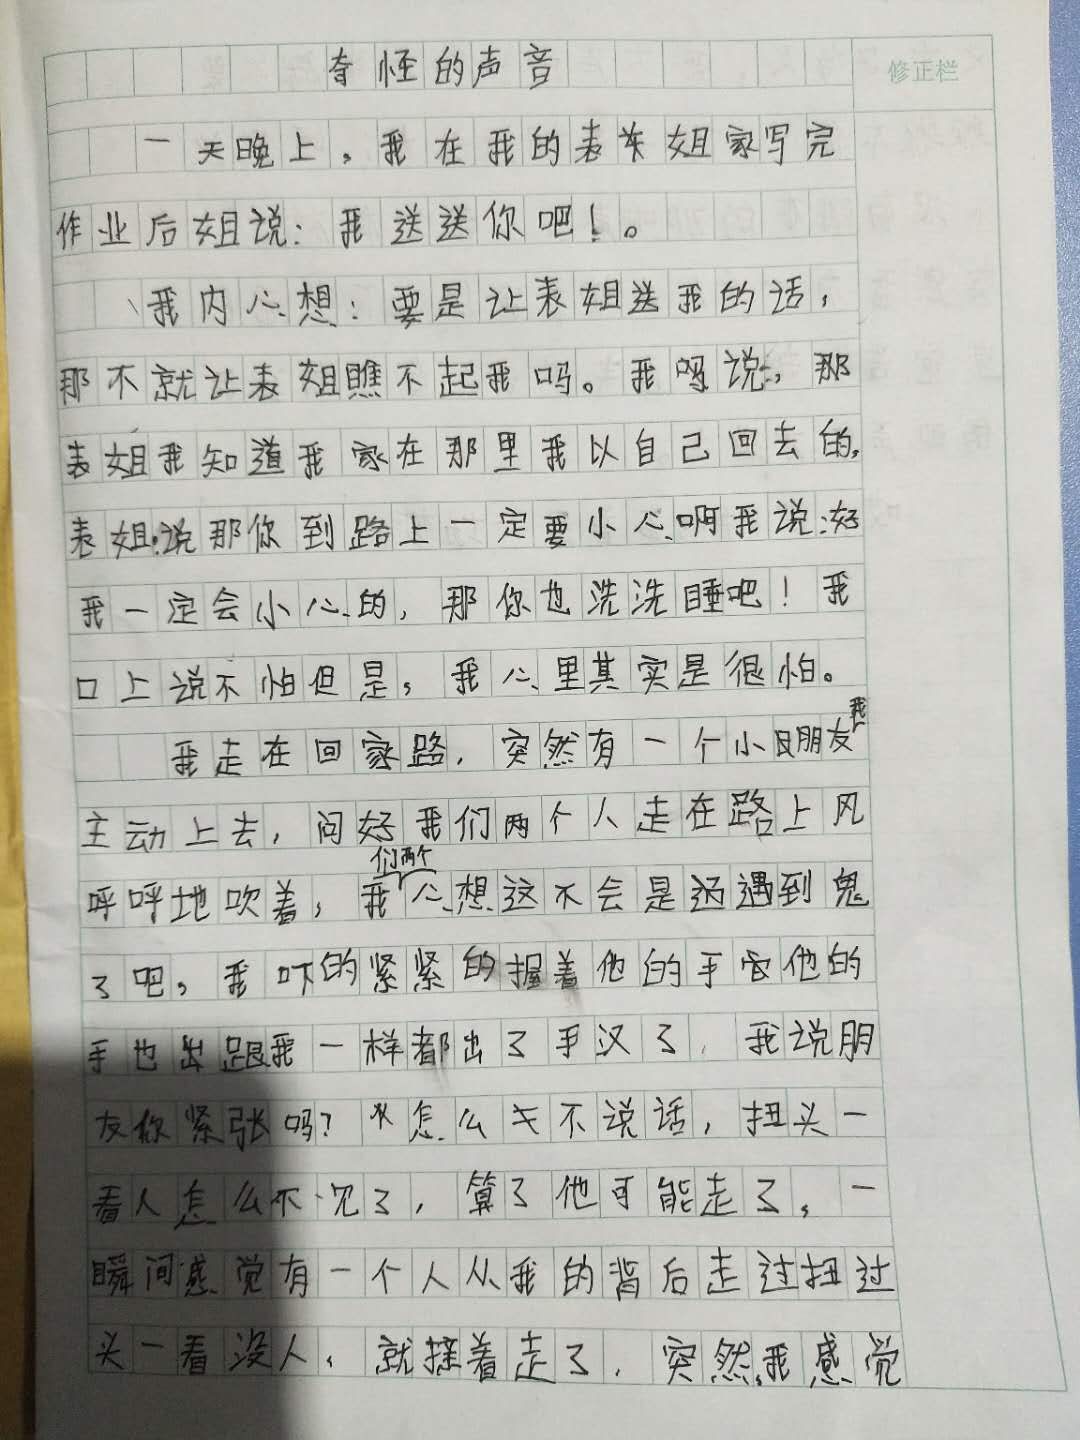 奇怪的声音
修正栏
一天晚上，我在我的表姐家写完
作业后姐说：我送送你吧！。
我内心想：要是让表姐送我的话，
那不就让表姐瞧不起我吗。我吗说：，那
表姐我知道我家在那里我以自己回去的，
表姐：说那你到路上一定要小心啊我说：好
我一定会小心的，那你也洗洗睡吧！我
口上说不怕但是，我心里其实是很怕。
我走在回家路，突然有一个小朋友我
主动上去，问好我们两个人走在路上风
呼呼地吹着，我们两个心想这不会是遇到鬼
了吧，我吓的紧紧的握着他的手他的
手也出跟我一样都出了手汉了，我说朋
友你紧张吗？怎么不说话，扭头一
看人怎么不见了，算了他可能走了。一
瞬间感觉有一个人从我的背后走过扭过
头一看没人，就接着走了，突然，我感觉